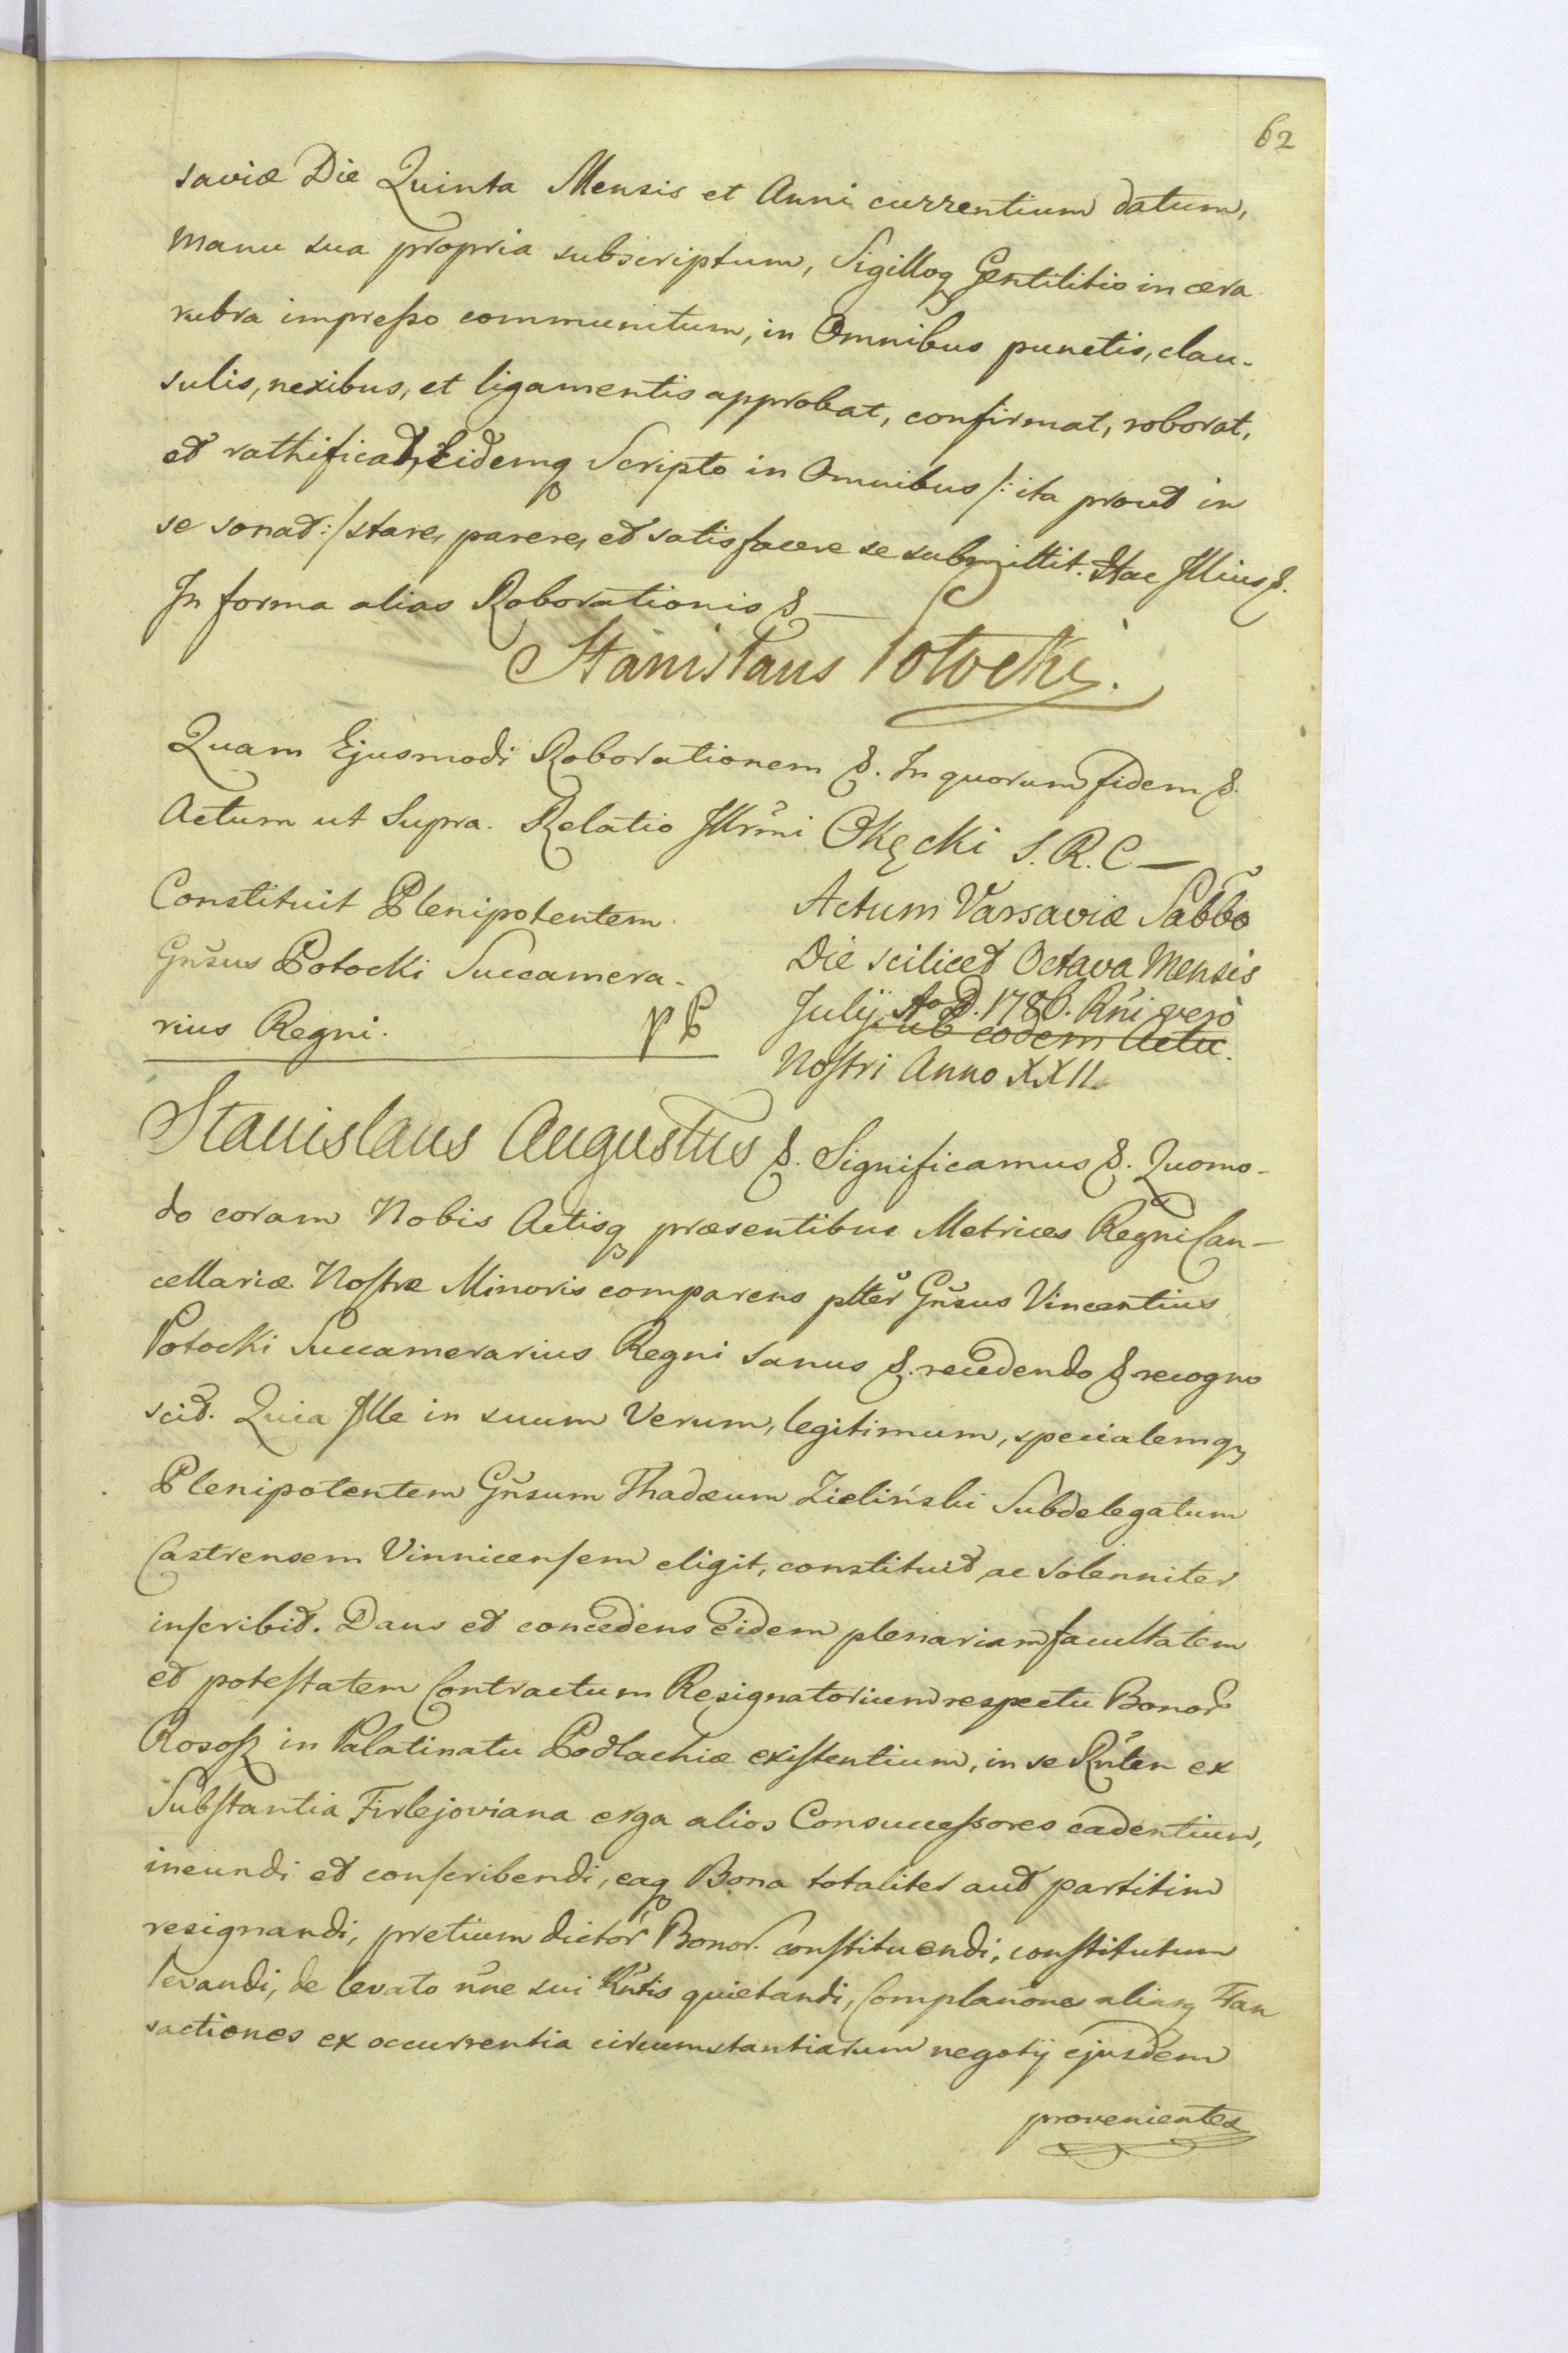 62
saviæ Die Quinta Mensis et Anni currentium datum,
manu sua propria subscriptum, Sigilloq Gentilitio in cera
rubra impresso communitum, in Omnibus punctis, clau-
sulis, nexibus, et ligamentis approbat, confirmat, roborat,
et rathificat, Eidemq Scripto in Omnibus /: ita prout in
se sonat :/ stare, parere, et satisfacere se submittit. Hac Illius &.
In forma alias Roborationis &
Stanislaus Potocki.
Quam Ejusmodi Roborationem &. In quorum fidem &.
Actum ut Supra. Relatio Illrm̃i Okęcki S. R. C.
Constituit Plenipotentem
Gñsus Potocki Succamera-
rius Regni.
Actum Varsaviæ Sabbõ
Die scilicet Octava Mensis
July Ao D. 1786. Rñi vero
ub eodem Actu.
Nostri Anno XXII.
Stanislaus Augustus &. Significamus &. Quomo-
do coram Nobis Actisq præsentibus Metrices Regni Can-
cellariæ Nostræ Minoris comparens pltter Gñsus Vincentius
Potocki Succamerarius Regni sanus &. recedendo & recogno
scit. Quia Ille in suum Verum, legitimum, specialemq
Plenipotentem Gñsum Thadæum Zieliński Subdelegatum
Castrensem Vinnicensem eligit, constituit ac solenniter
inscribit. Dans et concedens Eidem plenariam facultatem
et potestatem Contractum Resignatorium respectu Bonor
Rososz in Palatinatu Podlachiæ existentium, in se Rñten ex
Substantia Firlejoviana erga alios Consuccessores cadentium,
ineundi et conscribendi, eaq Bona totaliter aut partitim
resignandi, pretium dictor Bonor. constituendi, constitutum
levandi, de levato nñe sui Rñtis quietandi, Complanõnes aliasq Tran
sactiones ex occurrentia circumstantiarum negotij ejusdem
provenientes